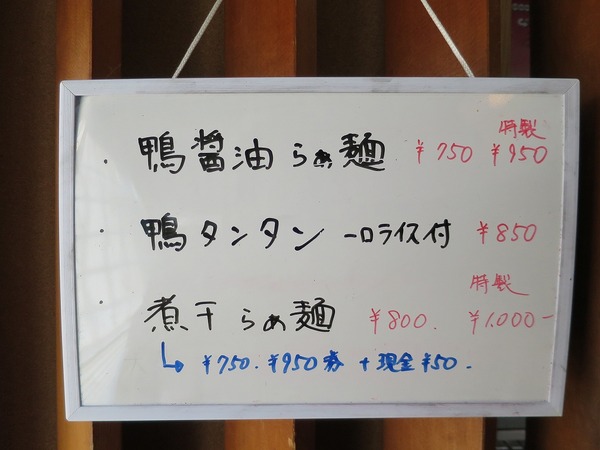 特製
・鴨醤油らぁ麺 ¥750 ¥950
・鴨タンタン 一口ライス付 ¥850
特製
・煮干らぁ麺 ¥800. ¥1.000-
↳ ¥750. ¥950券 + 現金¥50.